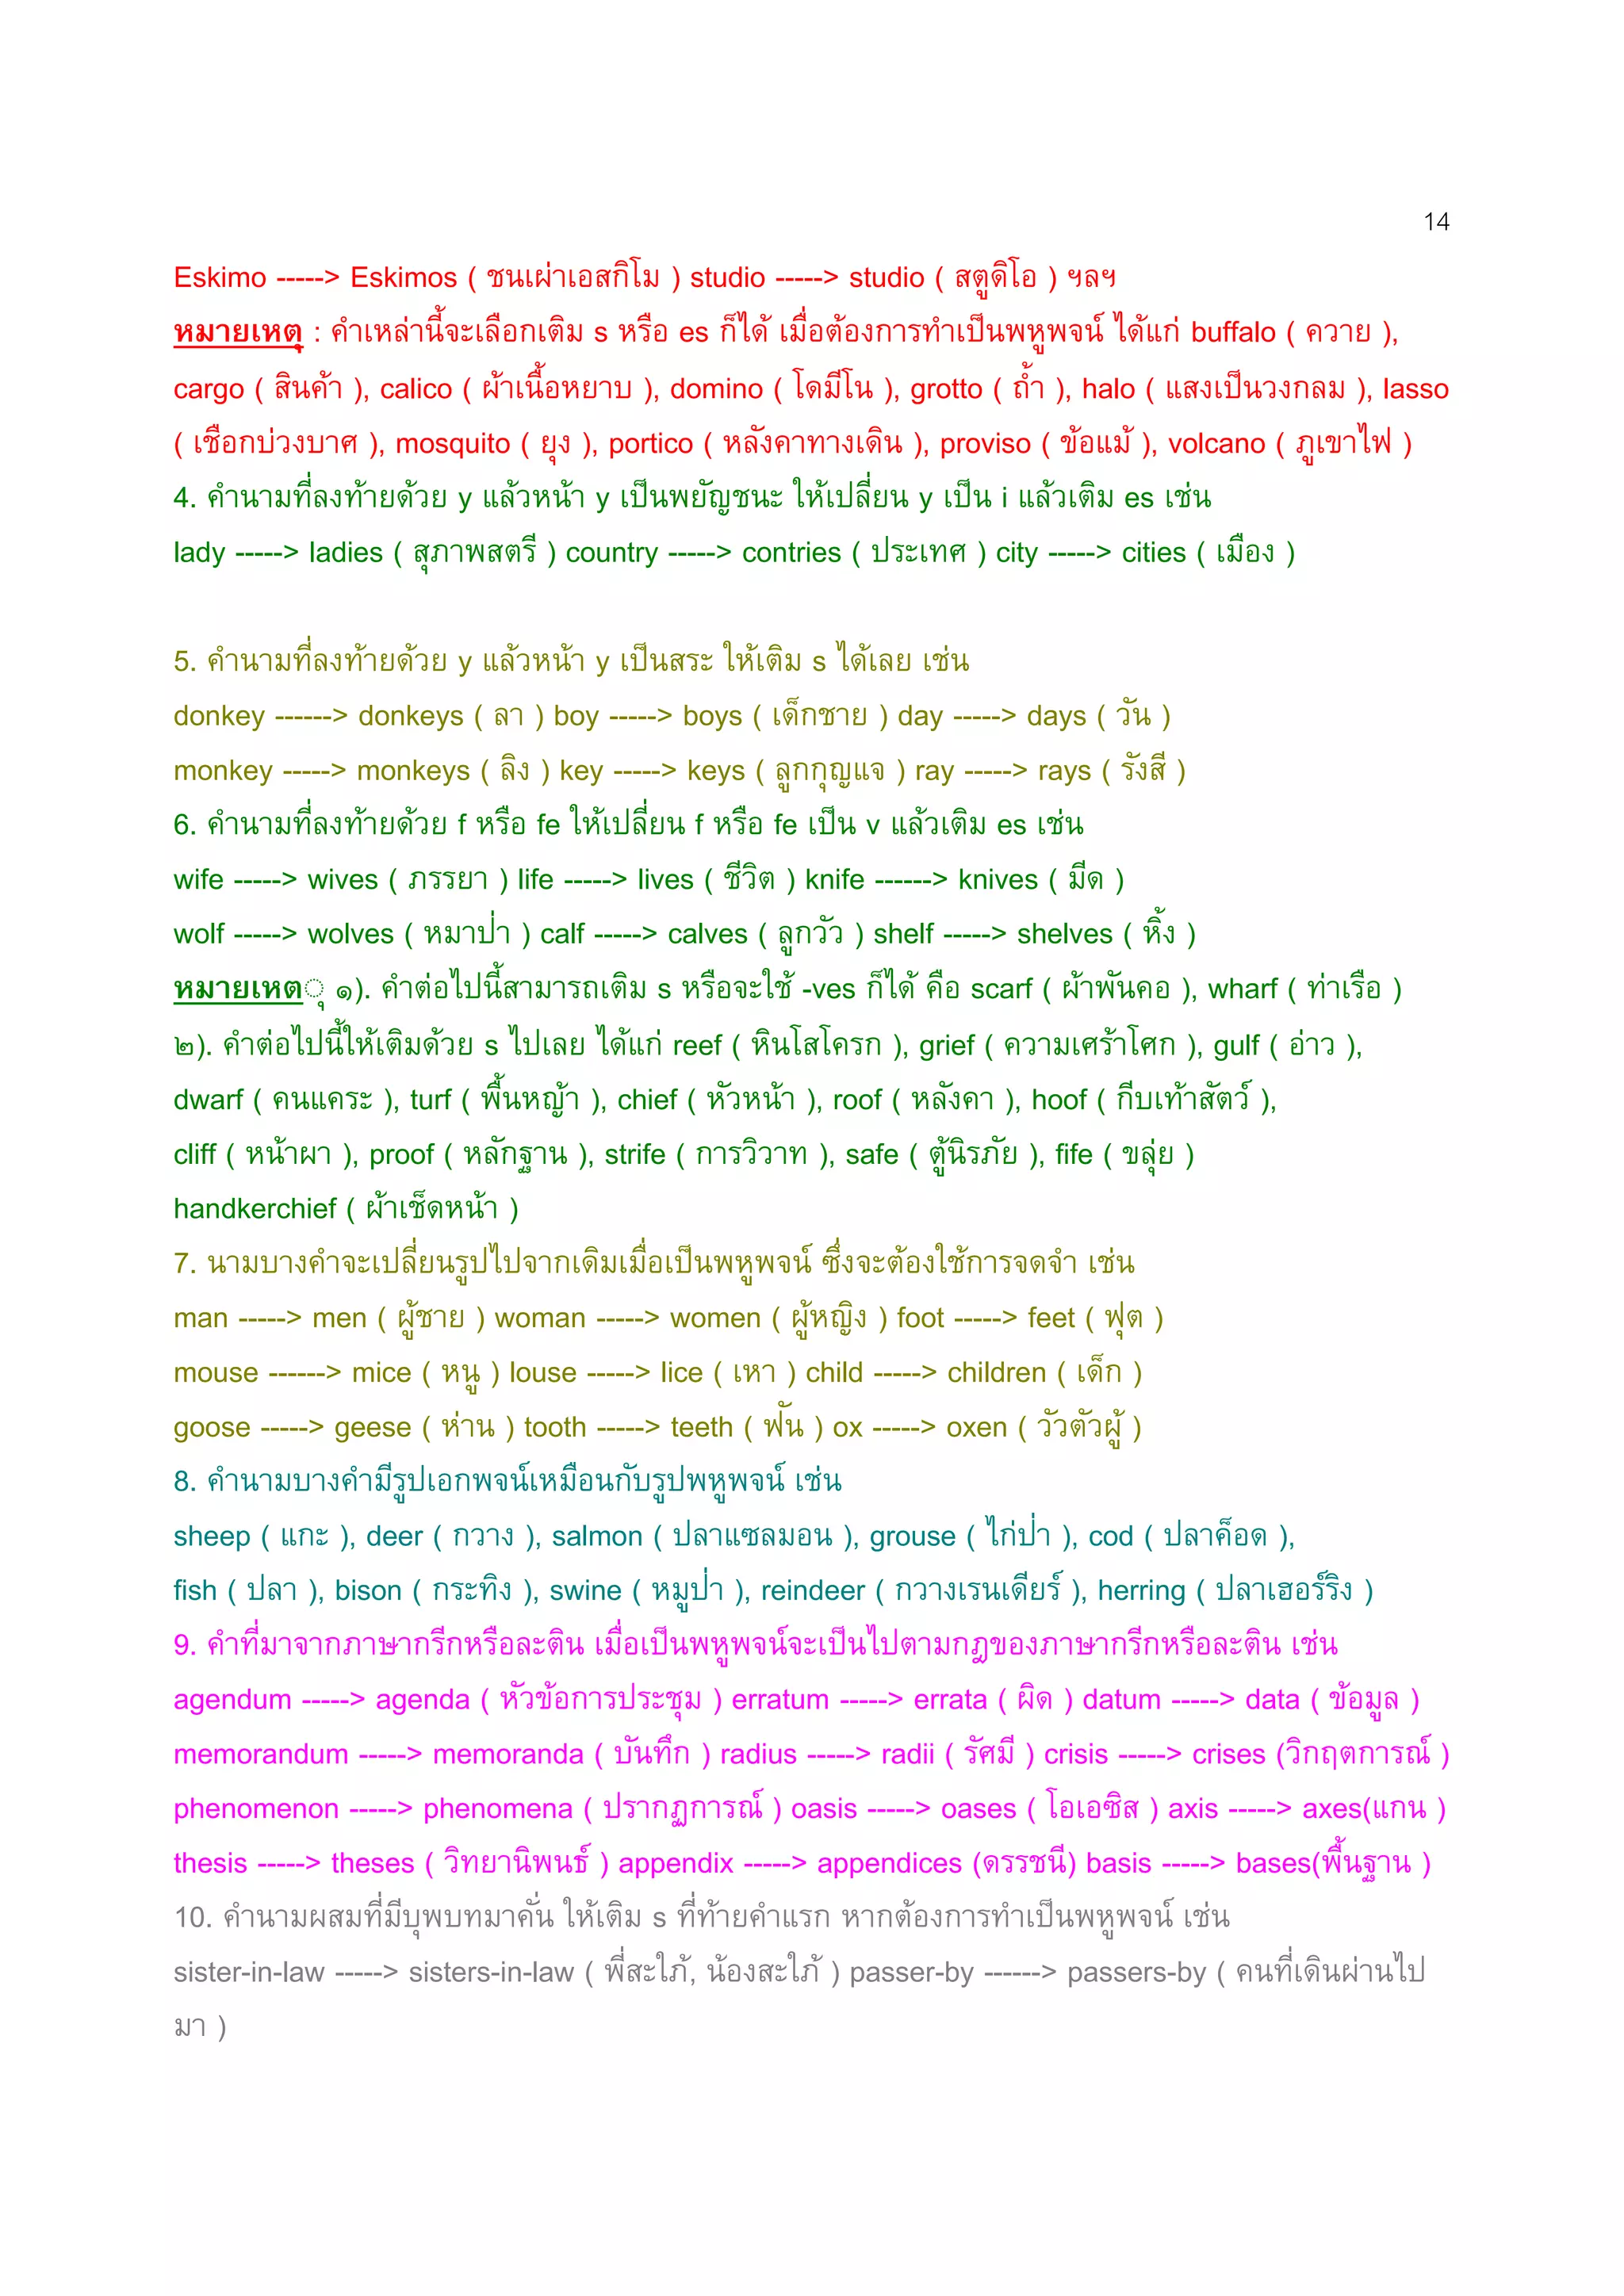 14
Eskimo -----> Eskimos ( ชนเผ่าเอสกิโม ) studio -----> studio ( สตูดิโอ ) ฯลฯ
หมายเหตุ : คำเหล่านี้จะเลือกเติม s หรือ es ก็ได้ เมื่อต้องการทำเป็นพหูพจน์ ได้แก่ buffalo ( ควาย ),
cargo ( สินค้า ), calico ( ผ้าเนื้อหยาบ ), domino ( โดมีโน ), grotto ( ถ้ำ ), halo ( แสงเป็นวงกลม ), lasso
( เชือกบ่วงบาศ ), mosquito ( ยุง ), portico ( หลังคาทางเดิน ), proviso ( ข้อแม้ ), volcano ( ภูเขาไฟ )
4. คำนามที่ลงท้ายด้วย y แล้วหน้า y เป็นพยัญชนะ ให้เปลี่ยน y เป็น i แล้วเติม es เช่น
lady -----> ladies ( สุภาพสตรี ) country -----> contries ( ประเทศ ) city -----> cities ( เมือง )
5. คำนามที่ลงท้ายด้วย y แล้วหน้า y เป็นสระ ให้เติม s ได้เลย เช่น
donkey ------> donkeys ( ลา ) boy -----> boys ( เด็กชาย ) day -----> days ( วัน )
monkey -----> monkeys ( ลิง ) key -----> keys ( ลูกกุญแจ ) ray -----> rays ( รังสี )
6. คำนามที่ลงท้ายด้วย f หรือ fe ให้เปลี่ยน f หรือ fe เป็น v แล้วเติม es เช่น
wife -----> wives ( ภรรยา ) life -----> lives ( ชีวิต ) knife ------> knives ( มีด )
wolf -----> wolves ( หมาป่า ) calf -----> calves ( ลูกวัว ) shelf -----> shelves ( หิ้ง )
หมายเหตุ ๑). คำต่อไปนี้สามารถเติม s หรือจะใช้ -ves ก็ได้ คือ scarf ( ผ้าพันคอ ), wharf ( ท่าเรือ )
๒). คำต่อไปนี้ให้เติมด้วย s ไปเลย ได้แก่ reef ( หินโสโครก ), grief ( ความเศร้าโศก ), gulf ( อ่าว ),
dwarf ( คนแคระ ), turf ( พื้นหญ้า ), chief ( หัวหน้า ), roof ( หลังคา ), hoof ( กีบเท้าสัตว์ ),
cliff ( หน้าผา ), proof ( หลักฐาน ), strife ( การวิวาท ), safe ( ตู้นิรภัย ), fife ( ขลุ่ย )
handkerchief ( ผ้าเช็ดหน้า )
7. นามบางคำจะเปลี่ยนรูปไปจากเดิมเมื่อเป็นพหูพจน์ ซึ่งจะต้องใช้การจดจำ เช่น
man -----> men ( ผู้ชาย ) woman -----> women ( ผู้หญิง ) foot -----> feet ( ฟุต )
mouse ------> mice ( หนู ) louse -----> lice ( เหา ) child -----> children ( เด็ก )
goose -----> geese ( ห่าน ) tooth -----> teeth ( ฟัน ) ox -----> oxen ( วัวตัวผู้ )
8. คำนามบางคำมีรูปเอกพจน์เหมือนกับรูปพหูพจน์ เช่น
sheep ( แกะ ), deer ( กวาง ), salmon ( ปลาแซลมอน ), grouse ( ไก่ป่า ), cod ( ปลาค็อด ),
fish ( ปลา ), bison ( กระทิง ), swine ( หมูป่า ), reindeer ( กวางเรนเดียร์ ), herring ( ปลาเฮอร์ริง )
9. คำที่มาจากภาษากรีกหรือละติน เมื่อเป็นพหูพจน์จะเป็นไปตามกฎของภาษากรีกหรือละติน เช่น
agendum -----> agenda ( หัวข้อการประชุม ) erratum -----> errata ( ผิด ) datum -----> data ( ข้อมูล )
memorandum -----> memoranda ( บันทึก ) radius -----> radii ( รัศมี ) crisis -----> crises (วิกฤตการณ์ )
phenomenon -----> phenomena ( ปรากฏการณ์ ) oasis -----> oases ( โอเอซิส ) axis -----> axes(แกน )
thesis -----> theses ( วิทยานิพนธ์ ) appendix -----> appendices (ดรรชนี) basis -----> bases(พื้นฐาน )
10. คำนามผสมที่มีบุพบทมาคั่น ให้เติม s ที่ท้ายคำแรก หากต้องการทำเป็นพหูพจน์ เช่น
sister-in-law -----> sisters-in-law ( พี่สะใภ้, น้องสะใภ้ ) passer-by ------> passers-by ( คนที่เดินผ่านไป
มา )